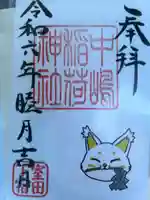 奉拝
中嶋
稲荷
神社
令和六年睦月吉日